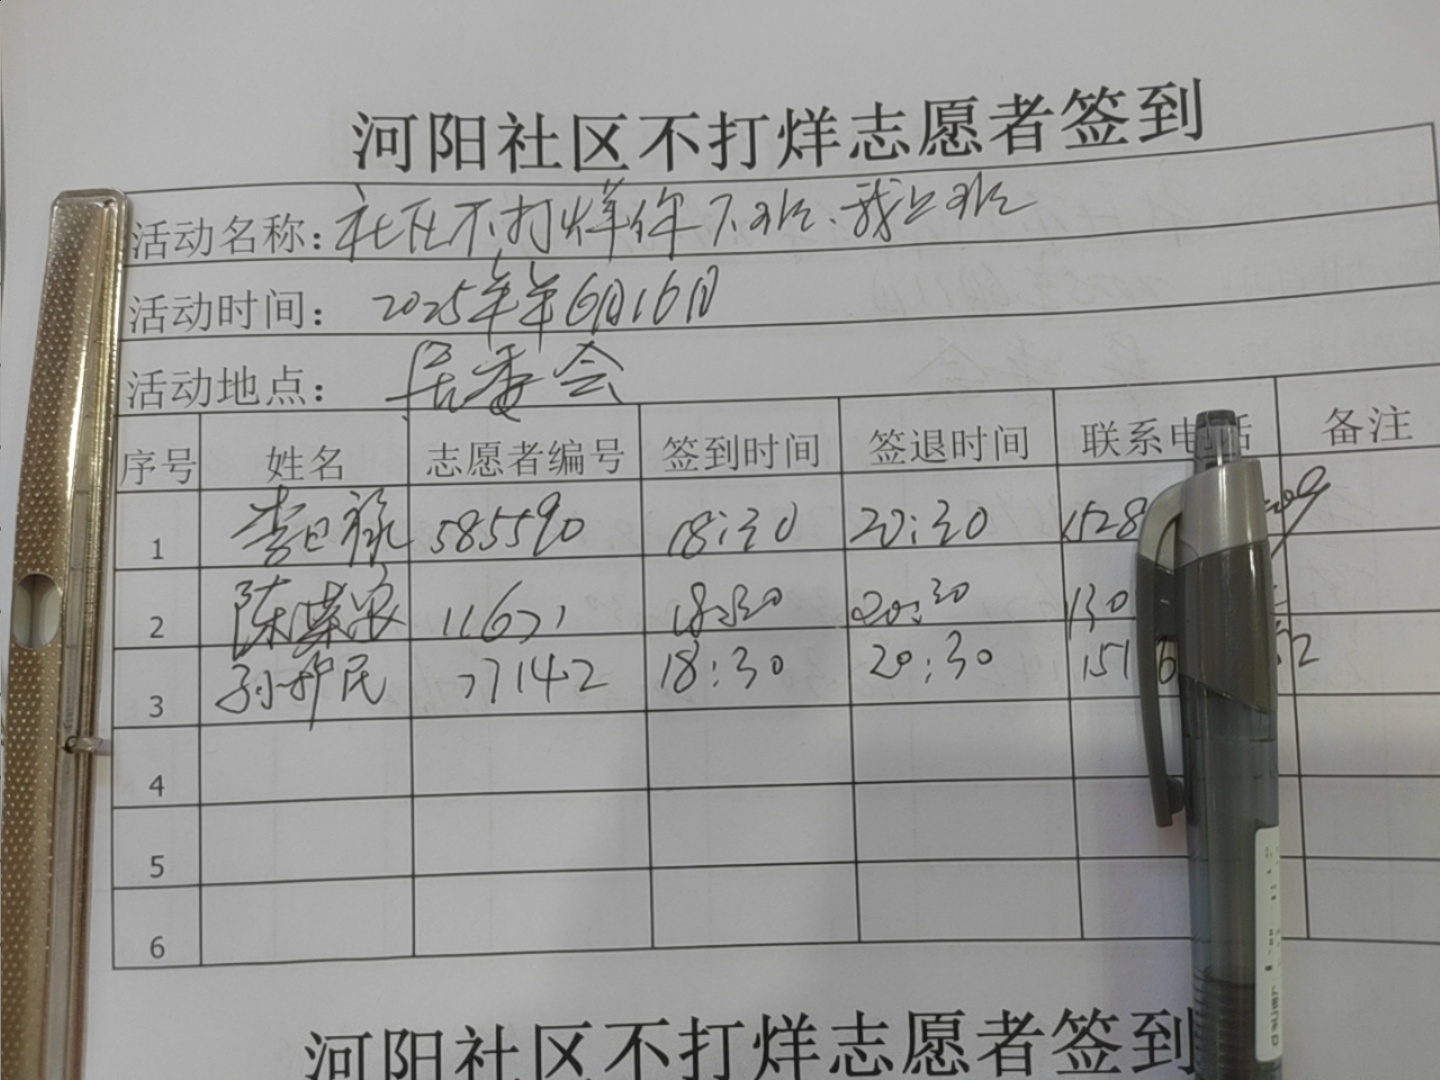 河阳社区不打烊志愿者签到
活动名称：社区不打烊你下班、我上班
活动时间：2025年年6月16日
活动地点：居委会
序号 姓名 志愿者编号 签到时间 签退时间 联系电话 备注
1 李日禄 585590 18:30 20:30 1528
2 陈 11671 18:30 20:30 130
3 孙 民 77142 18:30 20:30 151
4
5
6
河阳社区不打烊志愿者签到